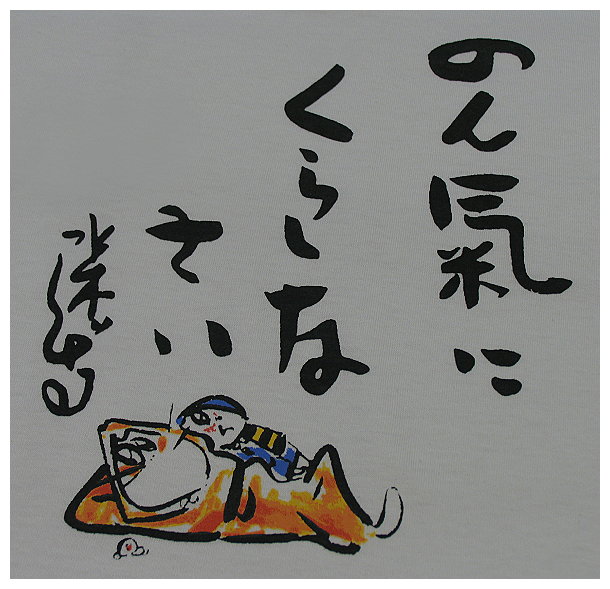 のん氣に
くらしな
さい
水木しげる